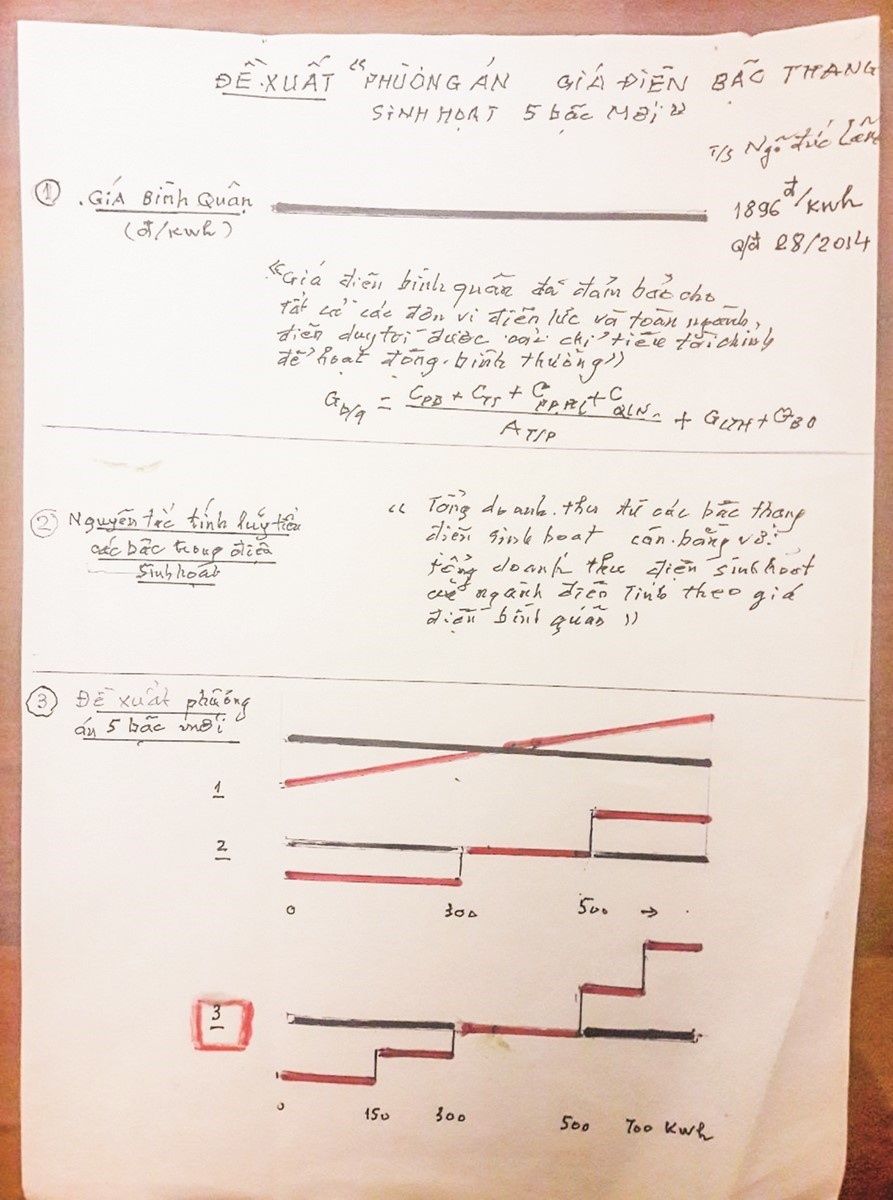 ĐỀ XUẤT “PHƯƠNG ÁN GIÁ ĐIỆN BẬC THANG
SINH HOẠT 5 bậc MỚI”
T/S Ngô Đức Lâm
① .GIÁ Bình Quân
(đ/kwh)
1896 đ/kwh
Q/đ 28/2014
“Giá điện bình quân đã đảm bảo cho
tất cả các đơn vị điện lực và toàn ngành,
điện duy trì được các chỉ tiêu tài chính
để hoạt động bình thường”
G_b/q = (C_PĐ + C_TS + C_PP.PL + C_QLN) / A_T/P + G_LTH + G_BO
② Nguyên tắc tính luỹ tiến
các bậc trong điện
sinh hoạt
“ Tổng doanh thu từ các bậc thang
điện sinh hoạt cân bằng với
tổng doanh thu điện sinh hoạt
của ngành điện tính theo giá
điện bình quân ”
③ Đề xuất phương
án 5 bậc mới
1
2
0 300 500 →
3
0 150 300 500 700 kwh